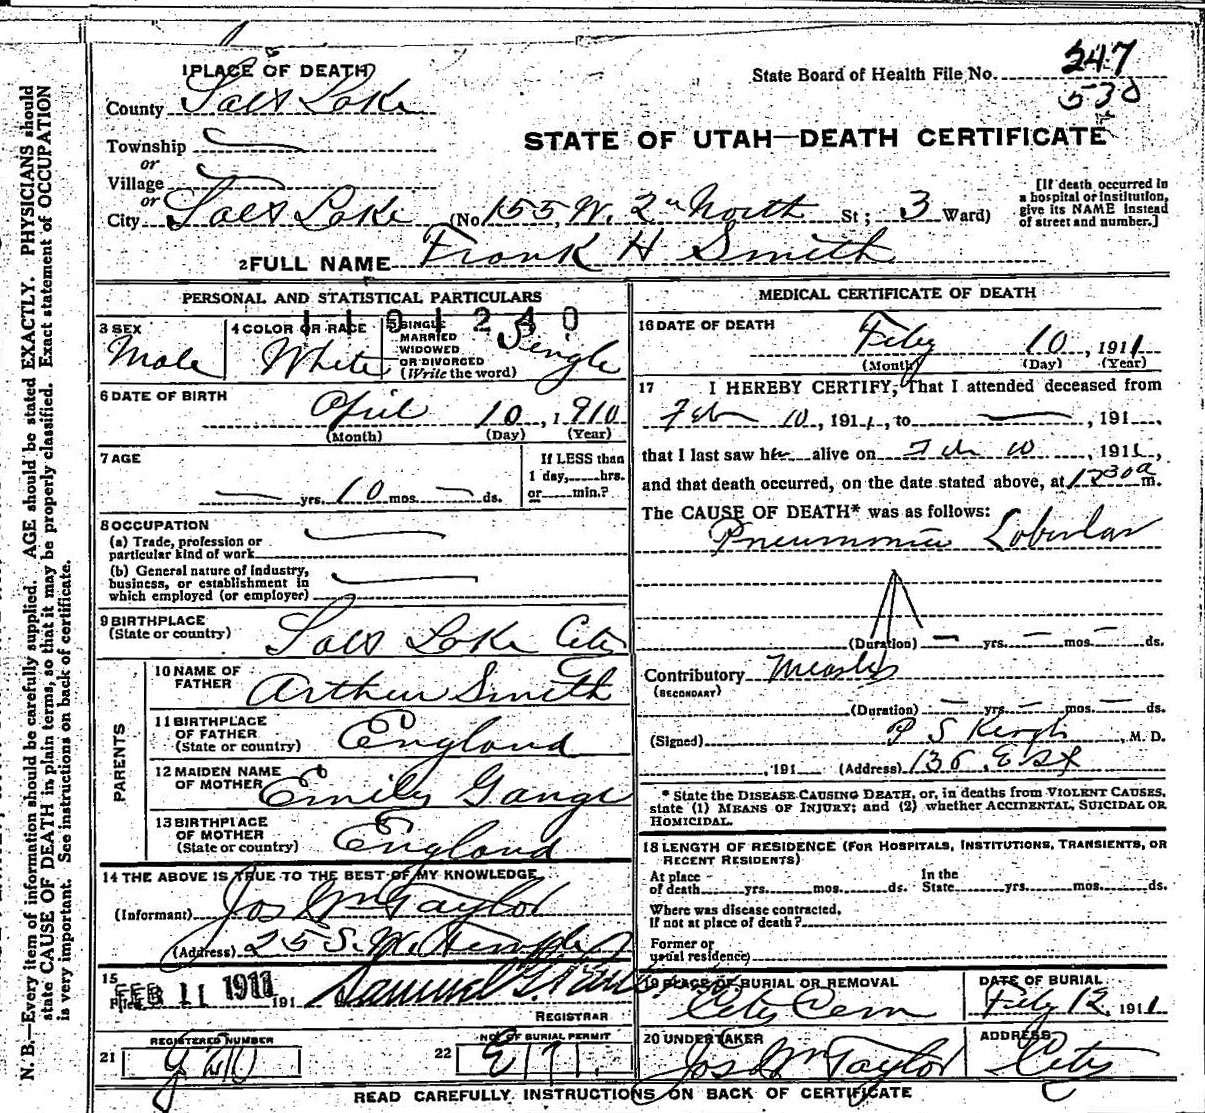 1 PLACE OF DEATH
State Board of Health File No. 247
530
County Salt Lake
STATE OF UTAH—DEATH CERTIFICATE
Township
or
Village
or
City Salt Lake (No. 155 W. 2nd North St; 3 Ward)
[If death occurred in a hospital or institution, give its NAME instead of street and number.]
2 FULL NAME Frank H Smith
PERSONAL AND STATISTICAL PARTICULARS
1101240
3 SEX Male
4 COLOR OR RACE White
5 SINGLE MARRIED WIDOWED OR DIVORCED (Write the word) Single
6 DATE OF BIRTH April 10, 1910
(Month) (Day) (Year)
7 AGE — yrs. 10 mos. — ds.
If LESS than 1 day, hrs. or min.?
8 OCCUPATION
(a) Trade, profession or particular kind of work
(b) General nature of Industry, business, or establishment in which employed (or employer)
9 BIRTHPLACE (State or country) Salt Lake City
PARENTS
10 NAME OF FATHER Arthur Smith
11 BIRTHPLACE OF FATHER (State or country) England
12 MAIDEN NAME OF MOTHER Emily Gange
13 BIRTHPLACE OF MOTHER (State or country) England
14 THE ABOVE IS TRUE TO THE BEST OF MY KNOWLEDGE
(Informant) Jos Wm Taylor
(Address) 25 S. W. Temple
15 Filed FEB 11 1911 191 Samuel G.
REGISTRAR
21 REGISTERED NUMBER
22 NO. OF BURIAL PERMIT E171
MEDICAL CERTIFICATE OF DEATH
16 DATE OF DEATH Feby 10, 1911
(Month) (Day) (Year)
17 I HEREBY CERTIFY, That I attended deceased from
Feb 10, 1911, to —, 191
that I last saw him alive on Feb 10, 1911,
and that death occurred, on the date stated above, at 1230a m.
The CAUSE OF DEATH* was as follows:
Pneumonia Lobular
(Duration) — yrs. — mos. — ds.
Contributory Measles
(SECONDARY)
(Duration) — yrs. — mos. — ds.
(Signed) P S Keogh, M. D.
, 191 (Address) 136. E St
* State the DISEASE CAUSING DEATH, or, in deaths from VIOLENT CAUSES, state (1) MEANS OF INJURY; and (2) whether ACCIDENTAL, SUICIDAL OR HOMICIDAL.
18 LENGTH OF RESIDENCE (FOR HOSPITALS, INSTITUTIONS, TRANSIENTS, OR RECENT RESIDENTS)
At place of death yrs. mos. ds. In the State yrs. mos. ds.
Where was disease contracted, If not at place of death?
Former or usual residence
19 PLACE OF BURIAL OR REMOVAL City Cem
DATE OF BURIAL Feby 12, 1911
20 UNDERTAKER Jos Wm Taylor
ADDRESS City
READ CAREFULLY INSTRUCTIONS ON BACK OF CERTIFICATE
N. B.—Every item of information should be carefully supplied. AGE should be stated EXACTLY. PHYSICIANS should
state CAUSE OF DEATH in plain terms, so that it may be properly classified. Exact statement of OCCUPATION
is very important. See instructions on back of certificate.